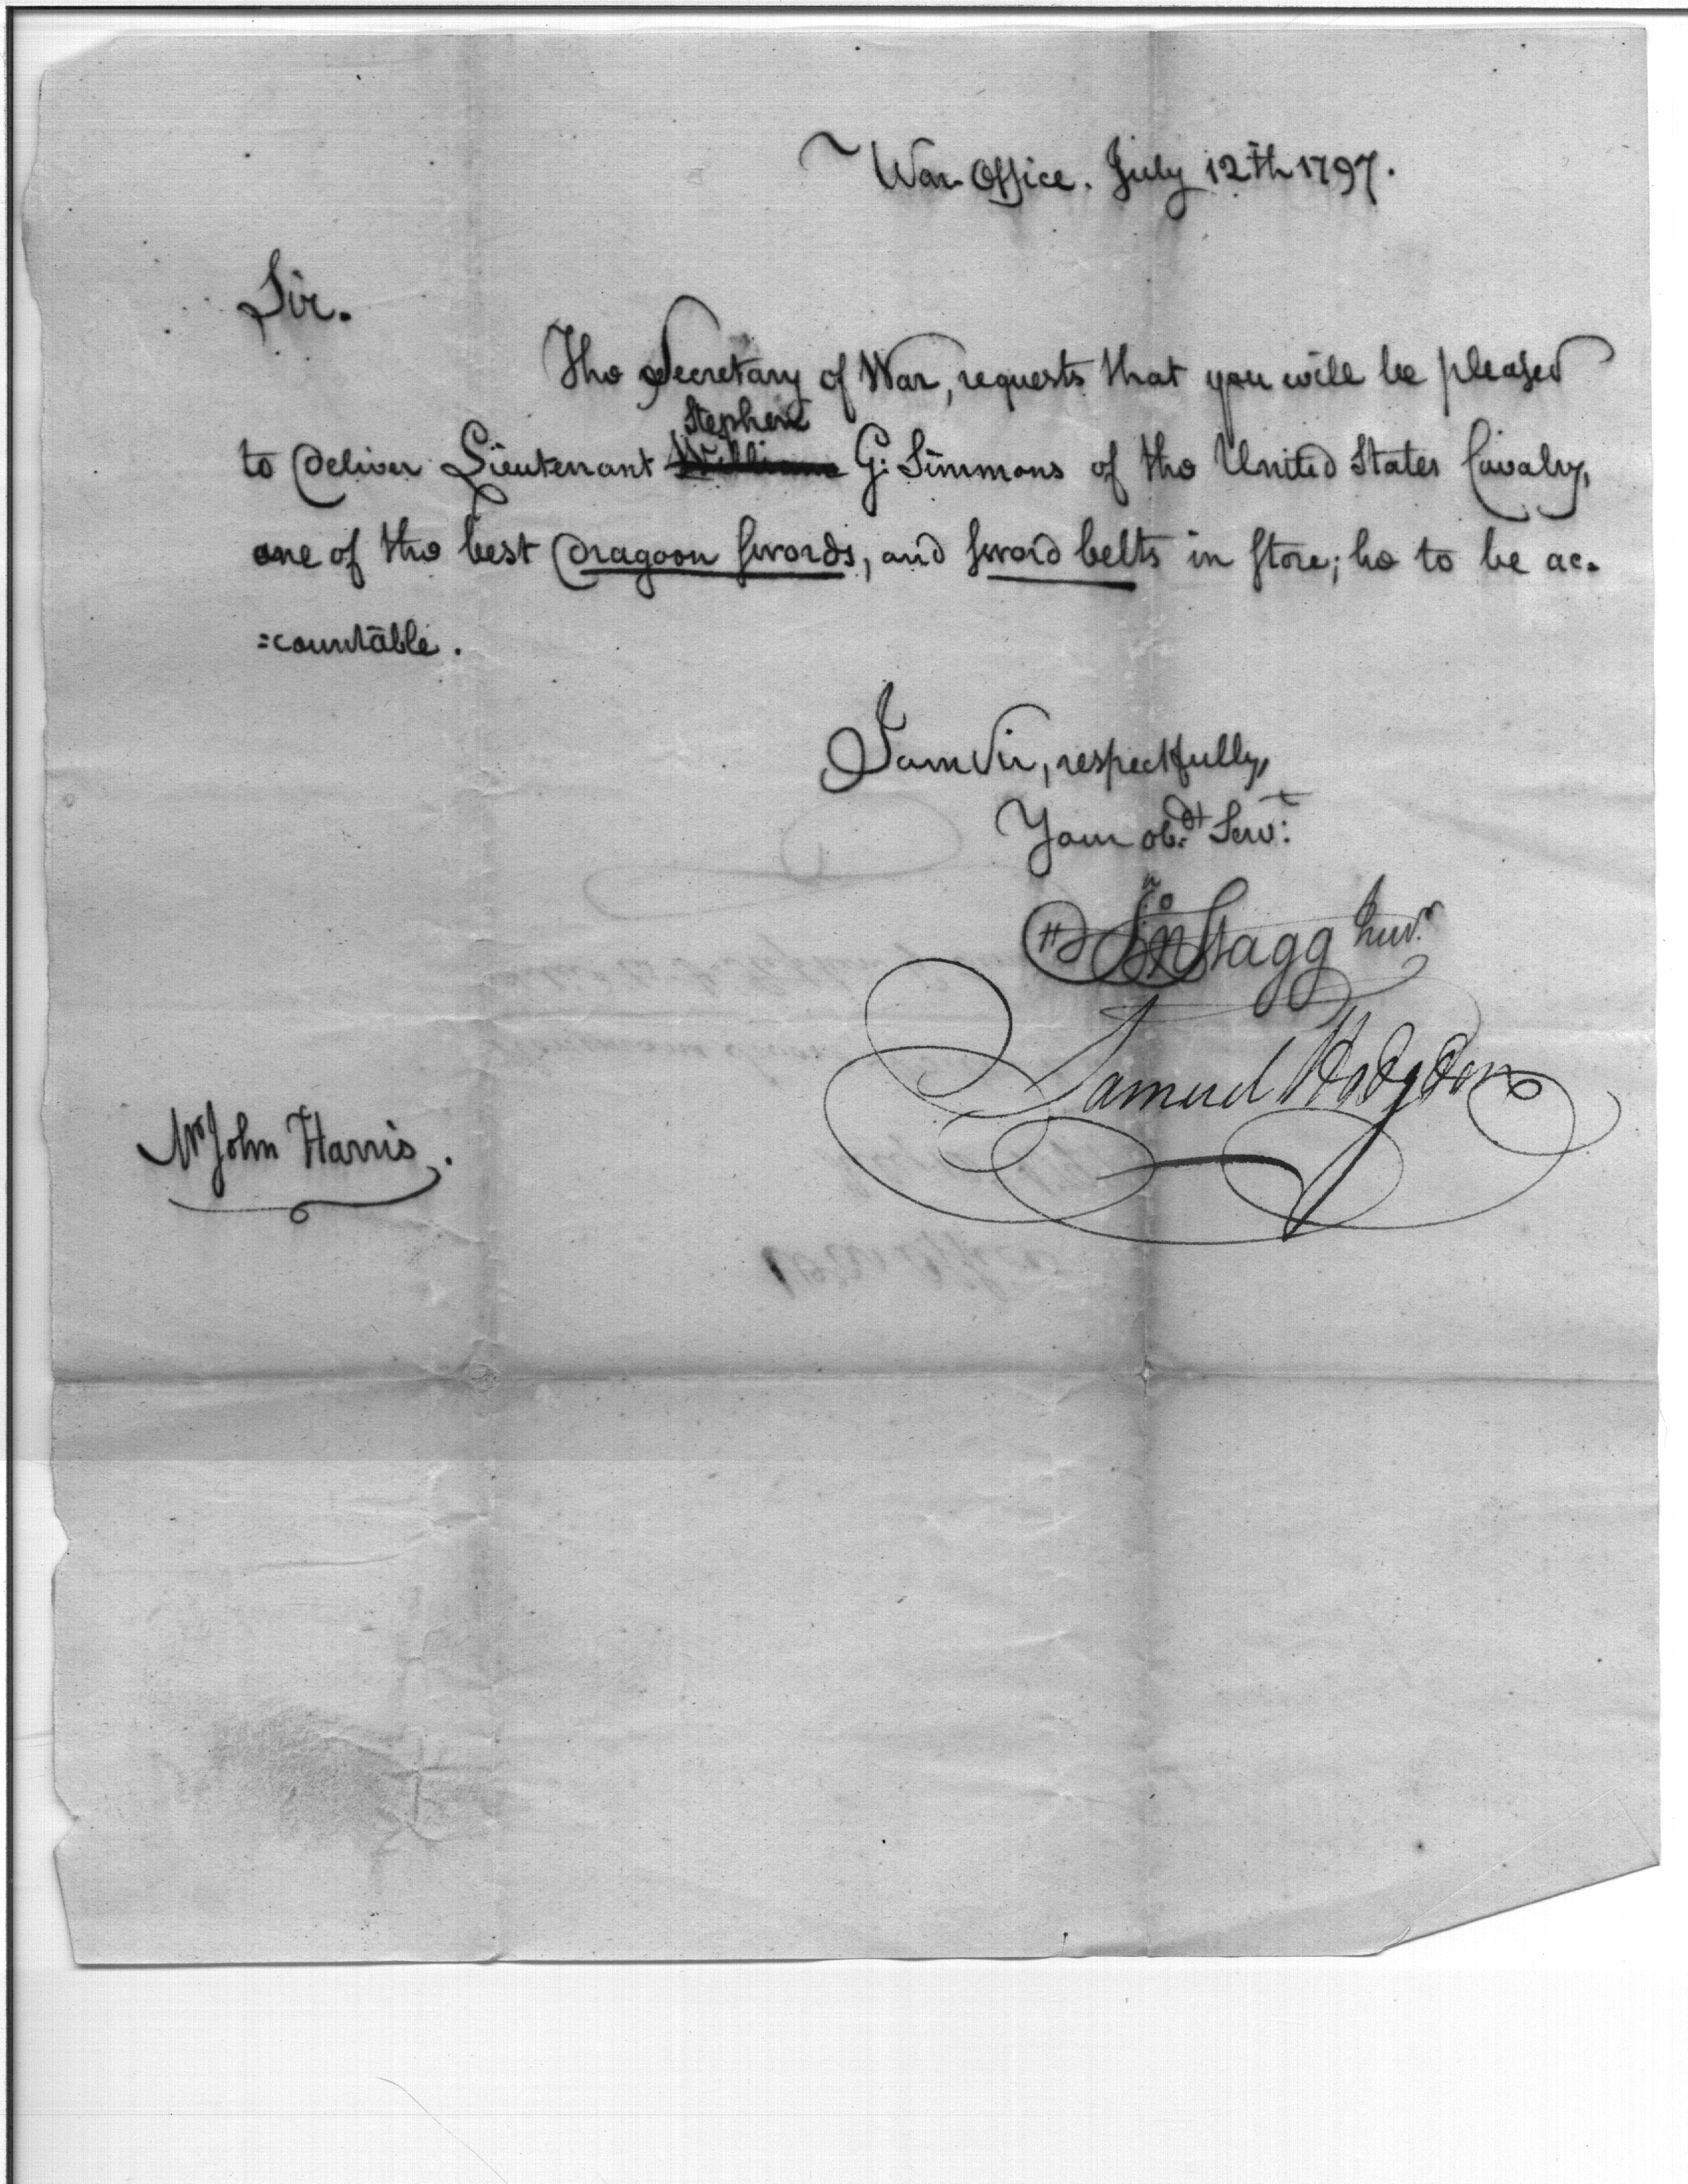 War Office. July 12th 1797.
Sir.
The Secretary of War, requests that you will be pleased
Stephen
to deliver Lieutenant William G: Simmons of the United States Cavalry,
one of the best dragoon swords, and sword belts in store; he to be ac-
=countable.
I am Sir, respectfully,
Your obdt Servt:
Jno Stagg Junr
Samuel Hodgdon
Mr John Harris.